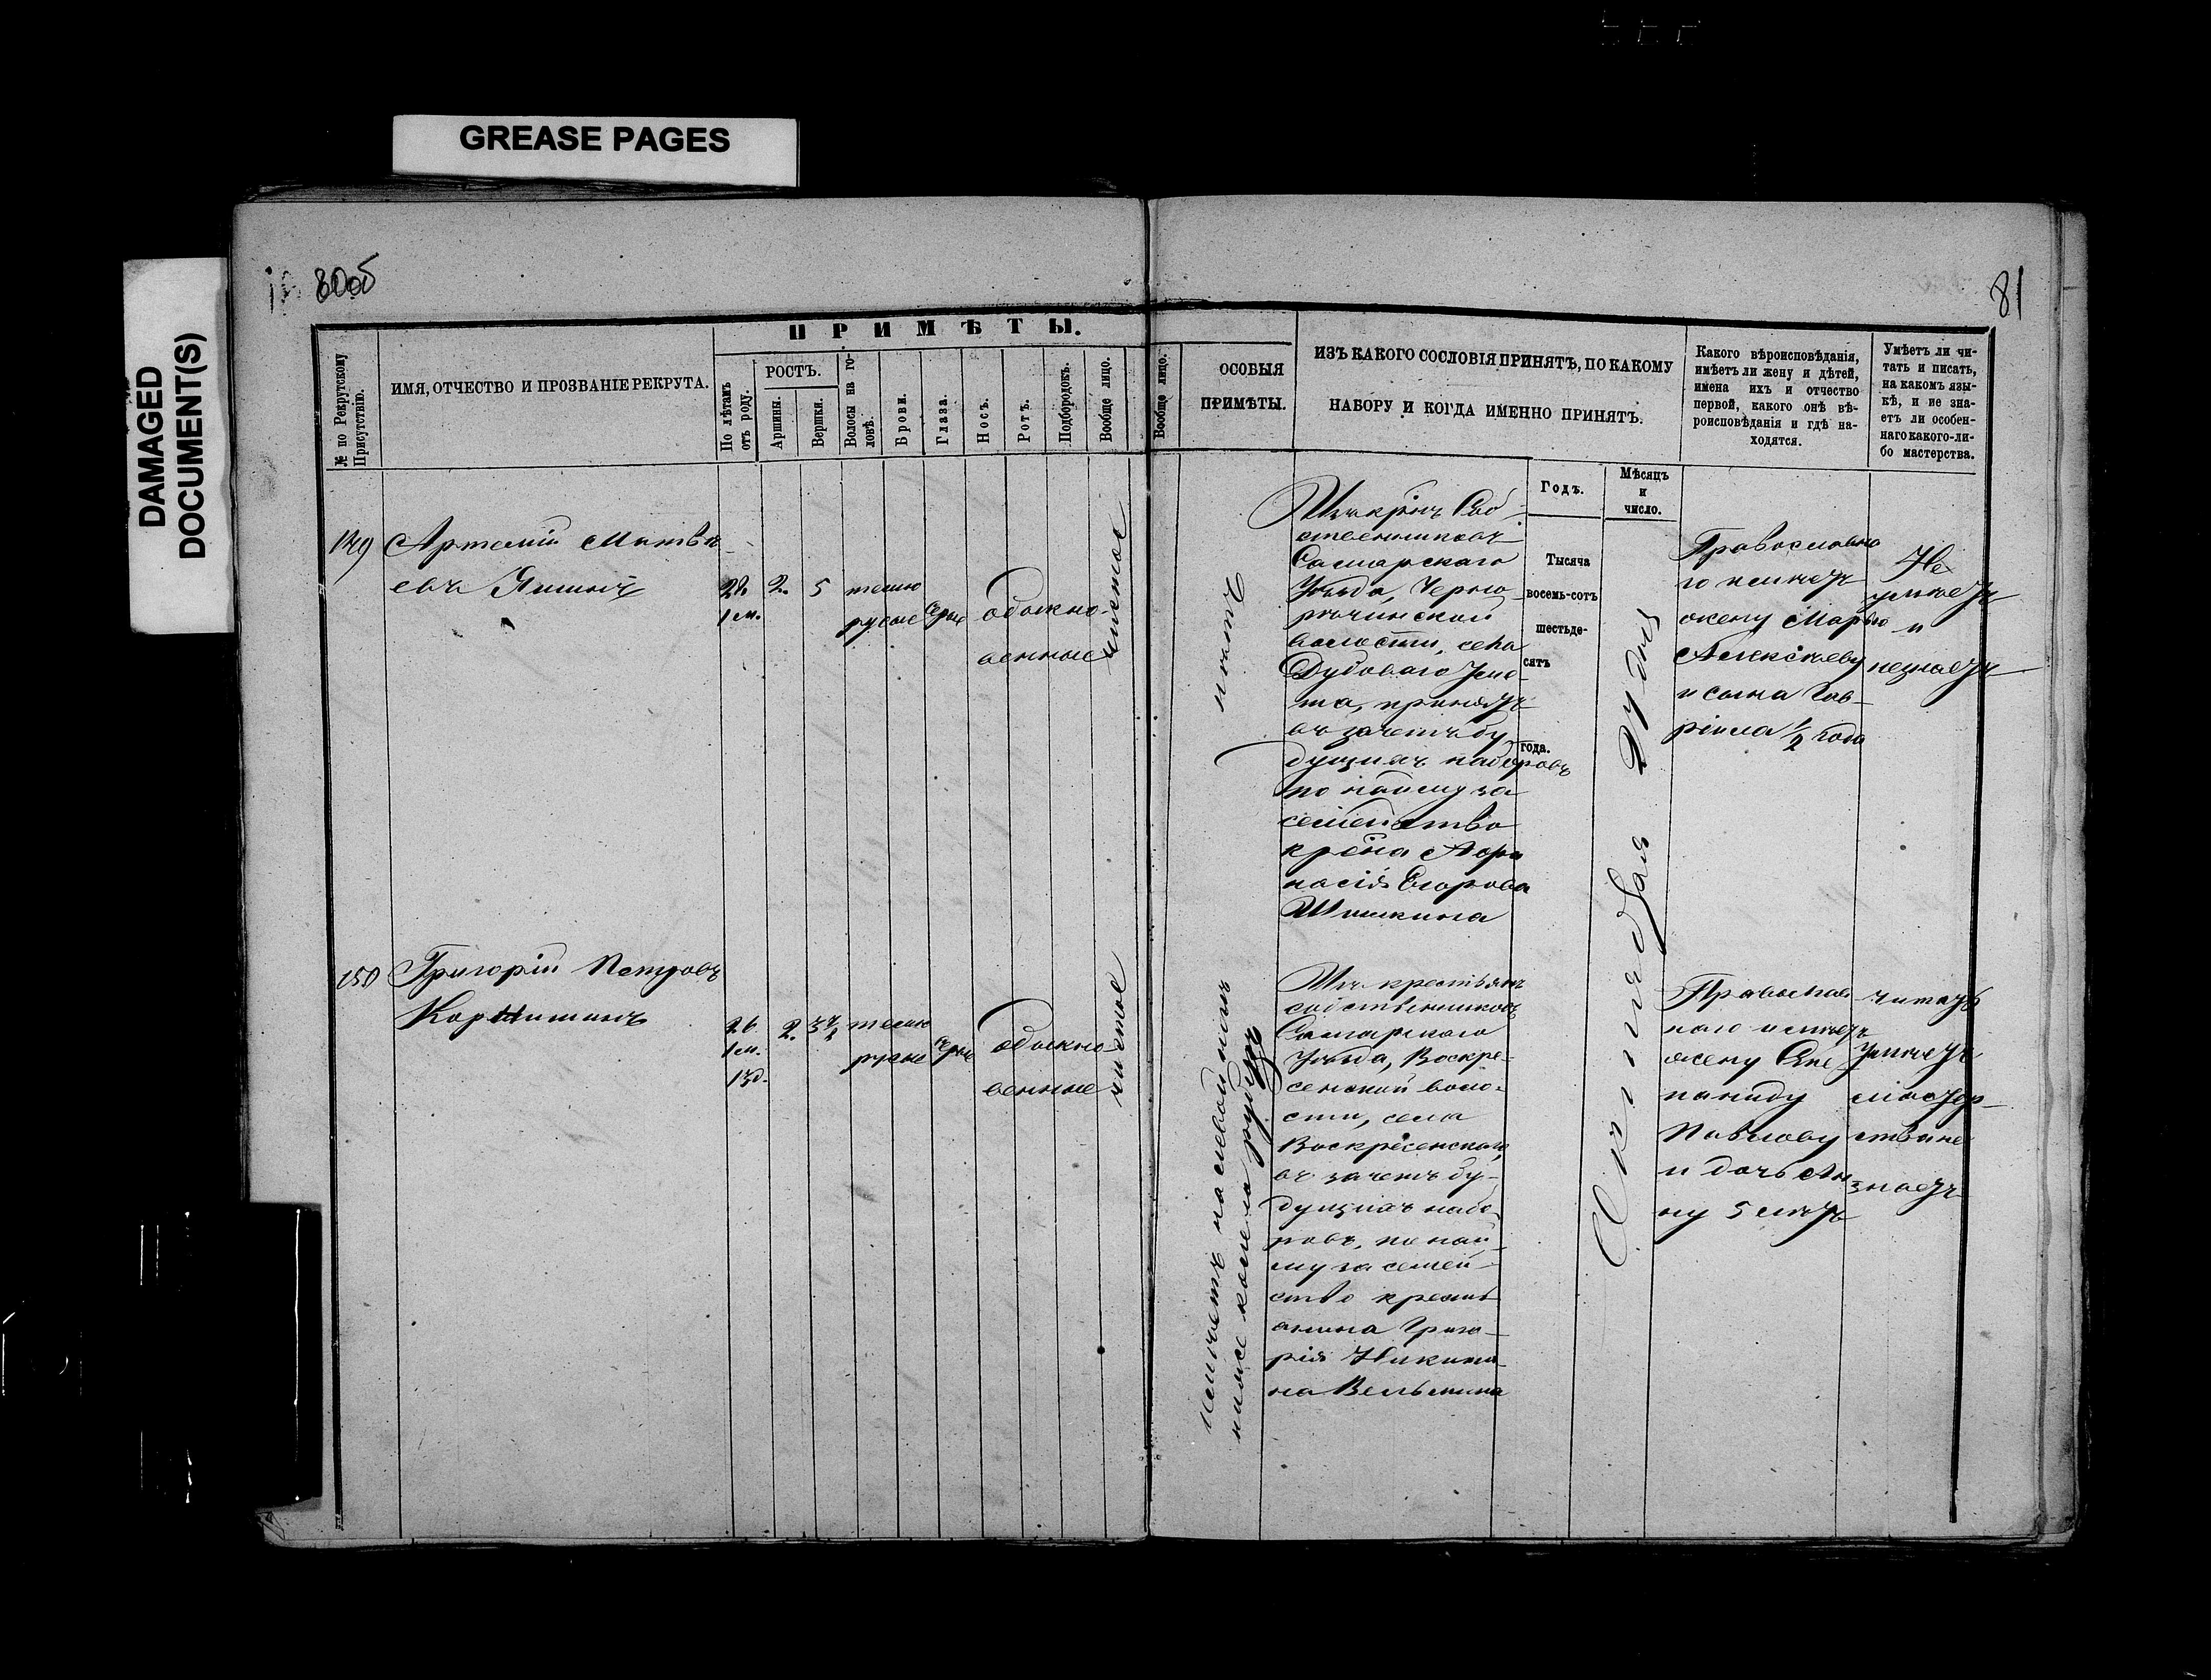 GREASE PAGES
DAMAGED
DOCUMENT(S)
80об
81
ПРИМѢТЫ.
№ по Рекрутскому
Присутствію.
ИМЯ, ОТЧЕСТВО И ПРОЗВАНІЕ РЕКРУТА.
По лѣтамъ
отъ роду.
РОСТЪ.
Аршины.
Вершки.
Волосы на го-
ловѣ.
Брови.
Глаза.
Носъ.
Ротъ.
Подбородокъ.
Вообще лицо.
Вообще лицо.
ОСОБЫЯ
ПРИМѢТЫ.
ИЗЪ КАКОГО СОСЛОВІЯ ПРИНЯТЪ, ПО КАКОМУ
НАБОРУ И КОГДА ИМЕННО ПРИНЯТЪ.
Какого вѣроисповѣданія,
имѣетъ ли жену и дѣтей,
имена ихъ и отчество
первой, какого онѣ вѣ-
роисповѣданія и гдѣ на-
ходятся.
Умѣетъ ли чи-
тать и писать,
на какомъ язы-
кѣ, и не зна-
етъ ли особен-
наго какого-ли-
бо мастерства.
Годъ.
Мѣсяцъ
и
число.
Тысяча
восемь-сотъ
шестьде-
сятъ
года.
149
Артемій Матвѣ-
евъ Яшинъ
2. 5
1 м.
темно
русые
сѣрые
обыкно-
венные
чистое
нѣтъ
Изъ крѣнъ Соб-
ственниковъ
Самарскаго
Уѣзда, Черно-
рѣчинской
волости, села
Дубоваго Уме-
та, принятъ
въ зачетъ бу-
дущихъ наборовъ
по найму за
семейство
крѣна Афа
насія Егорова
Шишкина
27 дня
Православна
го имѣетъ
жену Марью
Алексѣеву
и сына Гав-
ріила 1/2 года
Не
умѣетъ
и
незнаетъ
150
Григорій Петровъ
26
1 м.
13 д.
2. 3 1/2
темно
русые
сѣрые
обыкно-
венные
чистое
на лѣвой
ниже колена рубецъ
Изъ крестьянъ
собственниковъ
Самарскаго
Уѣзда, Воскре-
сенской воло-
сти, села
Воскресенскаго,
въ зачетъ бу-
дущихъ набо-
ровъ, по най-
му за семей-
ство кресть
янина Григо-
рія Никити-
на Вельмина
Православ
наго имѣетъ
жену Сте
паниду
Павлову
и дочь Ан-
ну 5 лѣтъ
читать
умѣетъ
мастер-
ства не
знаетъ